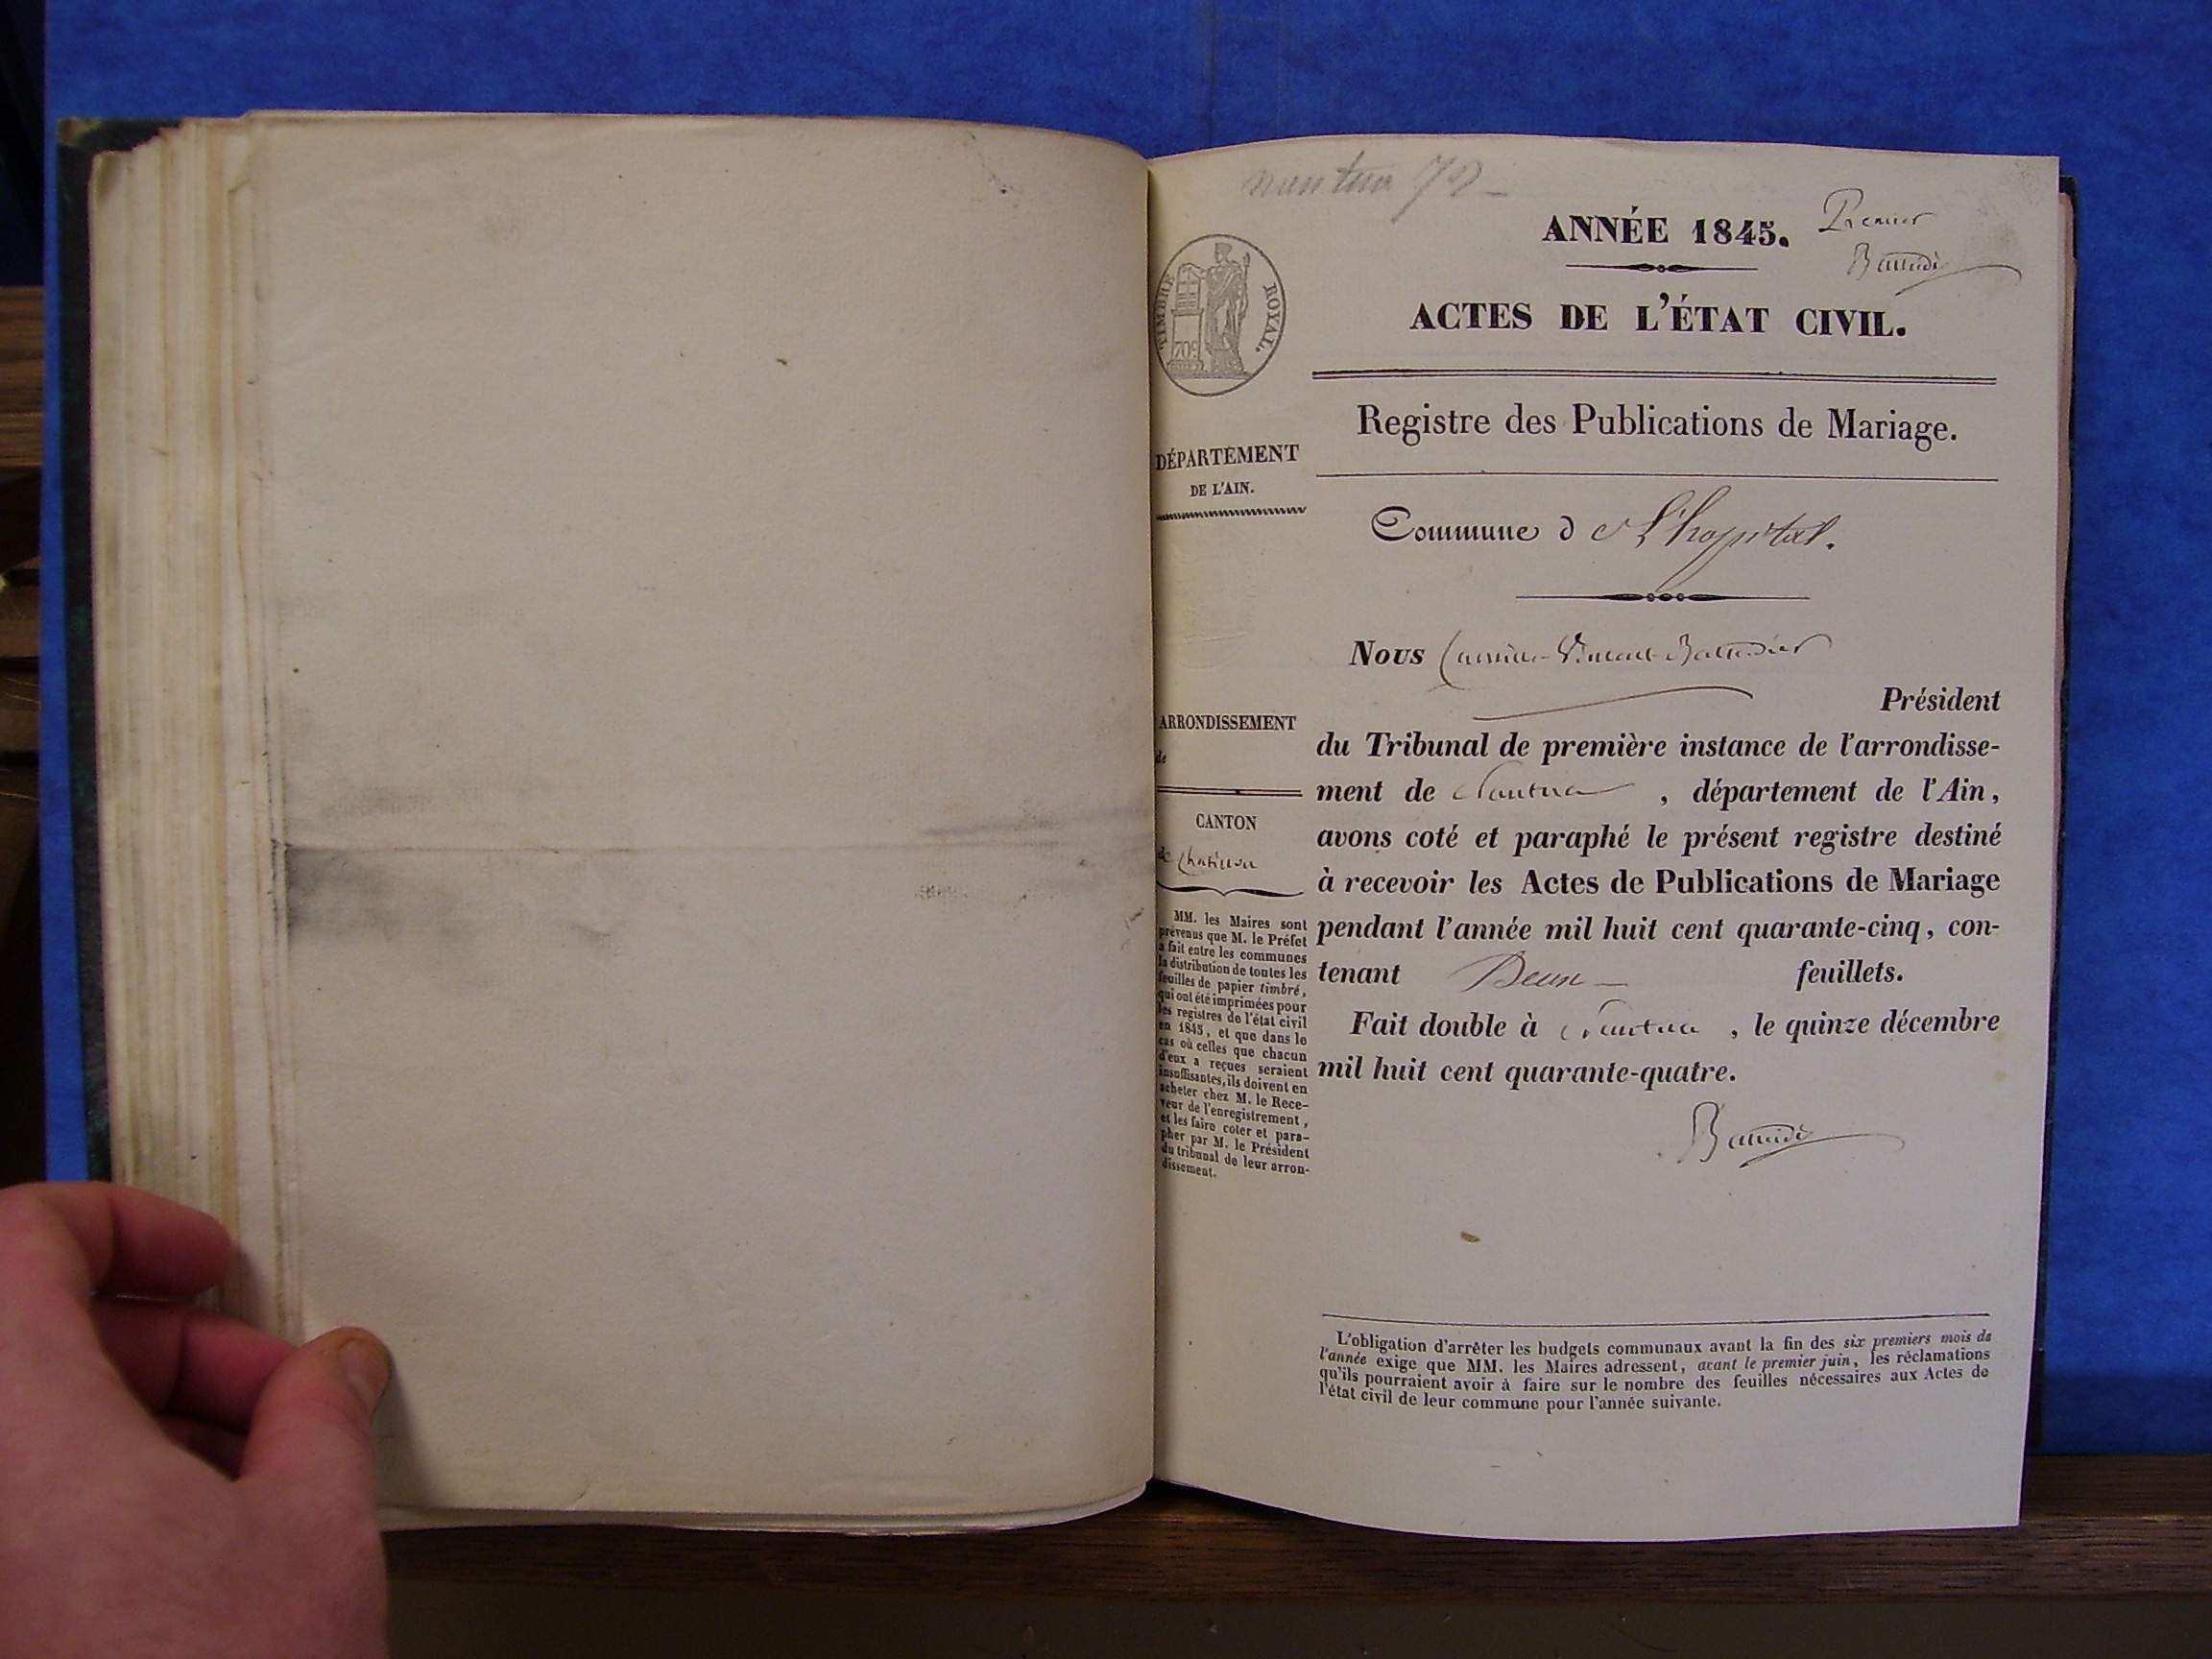 nantua
ANNÉE 1845.
Premier
TIMBRE ROYAL.
709
ACTES DE L'ÉTAT CIVIL.
Registre des Publications de Mariage.
DÉPARTEMENT
DE L'AIN.
Commune d e L'hopital.
Nous Camille Vincent Baudier
Président
ARRONDISSEMENT
de
du Tribunal de première instance de l'arrondisse-
ment de Nantua, département de l'Ain,
CANTON
de Chatillon
avons coté et paraphé le présent registre destiné
à recevoir les Actes de Publications de Mariage
pendant l'année mil huit cent quarante-cinq, con-
tenant Deux feuillets.
Fait double à Nantua, le quinze décembre
mil huit cent quarante-quatre.
MM. les Maires sont
prévenus que M. le Préfet
a fait entre les communes
la distribution de toutes les
feuilles de papier timbré,
qui ont été imprimées pour
les registres de l'état civil
en 1845, et que dans le
cas où celles que chacun
d'eux a reçues seraient
insuffisantes, ils doivent en
acheter chez M. le Rece-
veur de l'enregistrement,
et les faire coter et para-
pher par M. le Président
du tribunal de leur arron-
dissement.
L'obligation d'arrêter les budgets communaux avant la fin des six premiers mois de
l'année exige que MM. les Maires adressent, avant le premier juin, les réclamations
qu'ils pourraient avoir à faire sur le nombre des feuilles nécessaires aux Actes de
l'état civil de leur commune pour l'année suivante.